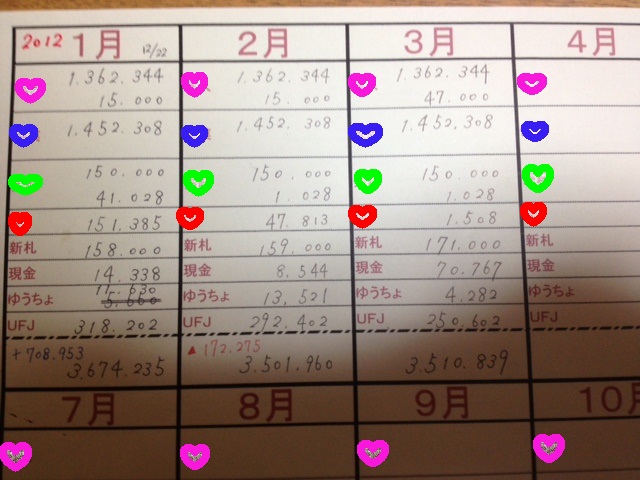 2012 1月 12/22 2月 3月 4月
1.362.344 1.362.344 1.362.344
15.000 15.000 47.000
1.452.308 1.452.308 1.452.308
150.000 150.000 150.000
41.028 1.028 1.028
151.385 47.813 1.508
新札 158.000 新札 159.000 新札 171.000 新札
現金 14.338 現金 8.544 現金 70.767 現金
11.630
ゆうちょ ゆうちょ 13,521 ゆうちょ 4.282 ゆうちょ
UFJ 318.202 UFJ 292.402 UFJ 250.602 UFJ
+708.953 ▲172.275
3.674.235 3.501.960 3.510.839
7月 8月 9月 10月